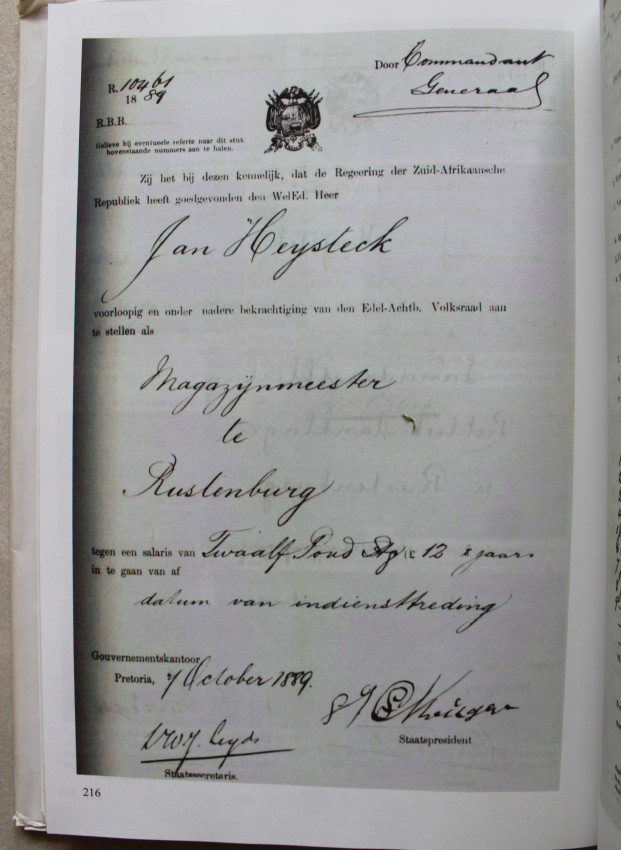 Door Commandant
Generaal
R. 10461
1889
R.B.B.
Gelieve bij eventueele referte naar dit stuk
bovenstaande nummers aan te halen.
Zij het bij dezen kennelijk, dat de Regeering der Zuid-Afrikaansche
Republiek heeft goedgevonden den WelEd. Heer
Jan Heysteck
voorloopig en onder nadere bekrachtiging van den Edel-Achtb. Volksraad aan
te stellen als
Magazijnmeester
te
Rustenburg
tegen een salaris van Twaalf Pond £12 's jaars
in te gaan van af
datum van indiensttreding
Gouvernementskantoor
Pretoria, 7 October 1889.
Staatspresident
Dr W. J. Leyds
Staatssecretaris.
216